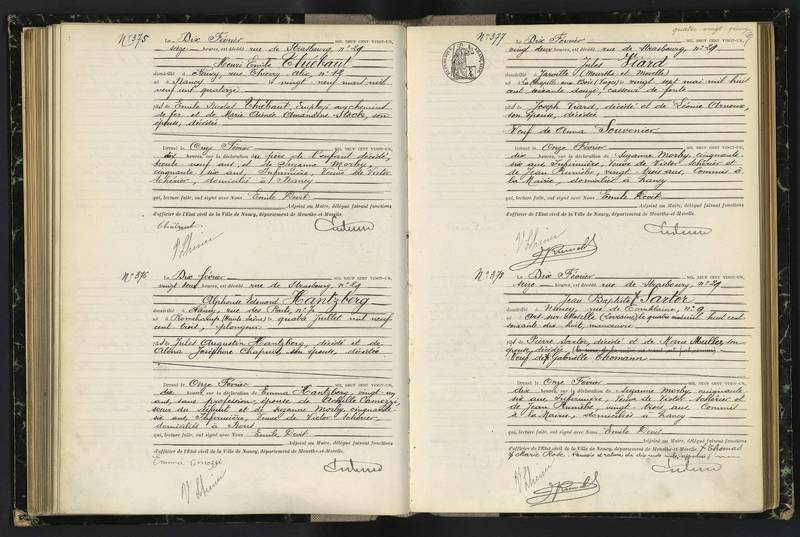 N° 375
Le Dix Février MIL NEUF CENT VINGT-UN,
seize heures, est décédé rue de Strasbourg, n° 29
Henri Emile Thiébaut
domicilié à Nancy, rue Thierry Alix n° 19
né à Nancy le vingt neuf mars mil
neuf cent quatorze
fils de Emile Nicolas Thiébaut, Employé au chemin
de fer et de Marie Amandine Stock, son
épouse, décédée
Devant le Onze Février MIL NEUF CENT VINGT-UN,
dix heures, sur la déclaration du père de l'enfant décédé,
trente neuf ans et de Suzanne Morby,
cinquante six ans, Infirmière, Veuve de Victor
Schérier, domiciliés à Nancy
qui, lecture faite, ont signé avec Nous Emile Devit
Adjoint au Maire, délégué faisant fonctions
d'officier de l'Etat civil de la Ville de Nancy, département de Meurthe-et-Moselle.
N° 376
Le Dix février MIL NEUF CENT VINGT-UN,
vingt heures, est décédé rue de Strasbourg n° 29
Alphonse Edouard Hantzberg
domicilié à Nancy, rue des Ponts, n° 7
né à Ronchamp (Haute Saône) le quatre juillet mil neuf
cent trois, plongeur
fils de Jules Augustin Hantzberg, décédé et de
Joséphine Chapuis, son épouse, décédée
Devant le Onze Février MIL NEUF CENT VINGT-UN,
dix heures, sur la déclaration de Emma Hantzberg, vingt-un
ans, sans profession, épouse de Achille
sœur du défunt et de Suzanne Morby, cinquante
six ans, Infirmière, Veuve de Victor Schérier,
domiciliés à Nancy
qui, lecture faite, ont signé avec Nous Emile Devit
Adjoint au Maire, délégué faisant fonctions
d'officier de l'Etat civil de la Ville de Nancy, département de Meurthe-et-Moselle.
N° 377
Le Dix Février MIL NEUF CENT VINGT-UN,
vingt deux heures, est décédé rue de Strasbourg, n° 29
Jules Viard
domicilié à Jarville (Meurthe et Moselle)
né à La Chapelle aux Bois (Vosges) le vingt sept mai mil huit
cent soixante douze, casseur de fonte
fils de Joseph Viard, décédé et de son épouse, décédée
Veuf de Anna Souvenier
Devant le Onze Février MIL NEUF CENT VINGT-UN,
dix heures, sur la déclaration de Suzanne Morby, cinquante
six ans Infirmière, Veuve de Victor Schérier et
de Jean vingt trois ans, Commis à
la Mairie, domiciliés à Nancy
qui, lecture faite, ont signé avec Nous Emile Devit
Adjoint au Maire, délégué faisant fonctions
d'officier de l'Etat civil de la Ville de Nancy, département de Meurthe-et-Moselle.
N° 378
Le Dix Février MIL NEUF CENT VINGT-UN,
seize heures, est décédé rue de Strasbourg, n° 29
Jean Baptiste Sartor
domicilié à Nancy, rue de Tomblaine, n° 9
né à Ars sur Moselle (Lorraine) le quatre mil huit cent
soixante dix huit, manœuvre
fils de Pierre Sartor, décédé et de Marie Muller, son
épouse, décédée
Veuf de Gabrielle Thomann
Devant le Onze Février MIL NEUF CENT VINGT-UN,
dix heures, sur la déclaration de Suzanne Morby, cinquante
six ans, Infirmière, Veuve de Victor Schérier et
de Jean vingt trois ans, Commis
à la Mairie, domiciliés à Nancy
qui, lecture faite, ont signé avec Nous Emile Devit
Adjoint au Maire, délégué faisant fonctions
d'officier de l'Etat civil de la Ville de Nancy, département de Meurthe-et-Moselle. Thomas